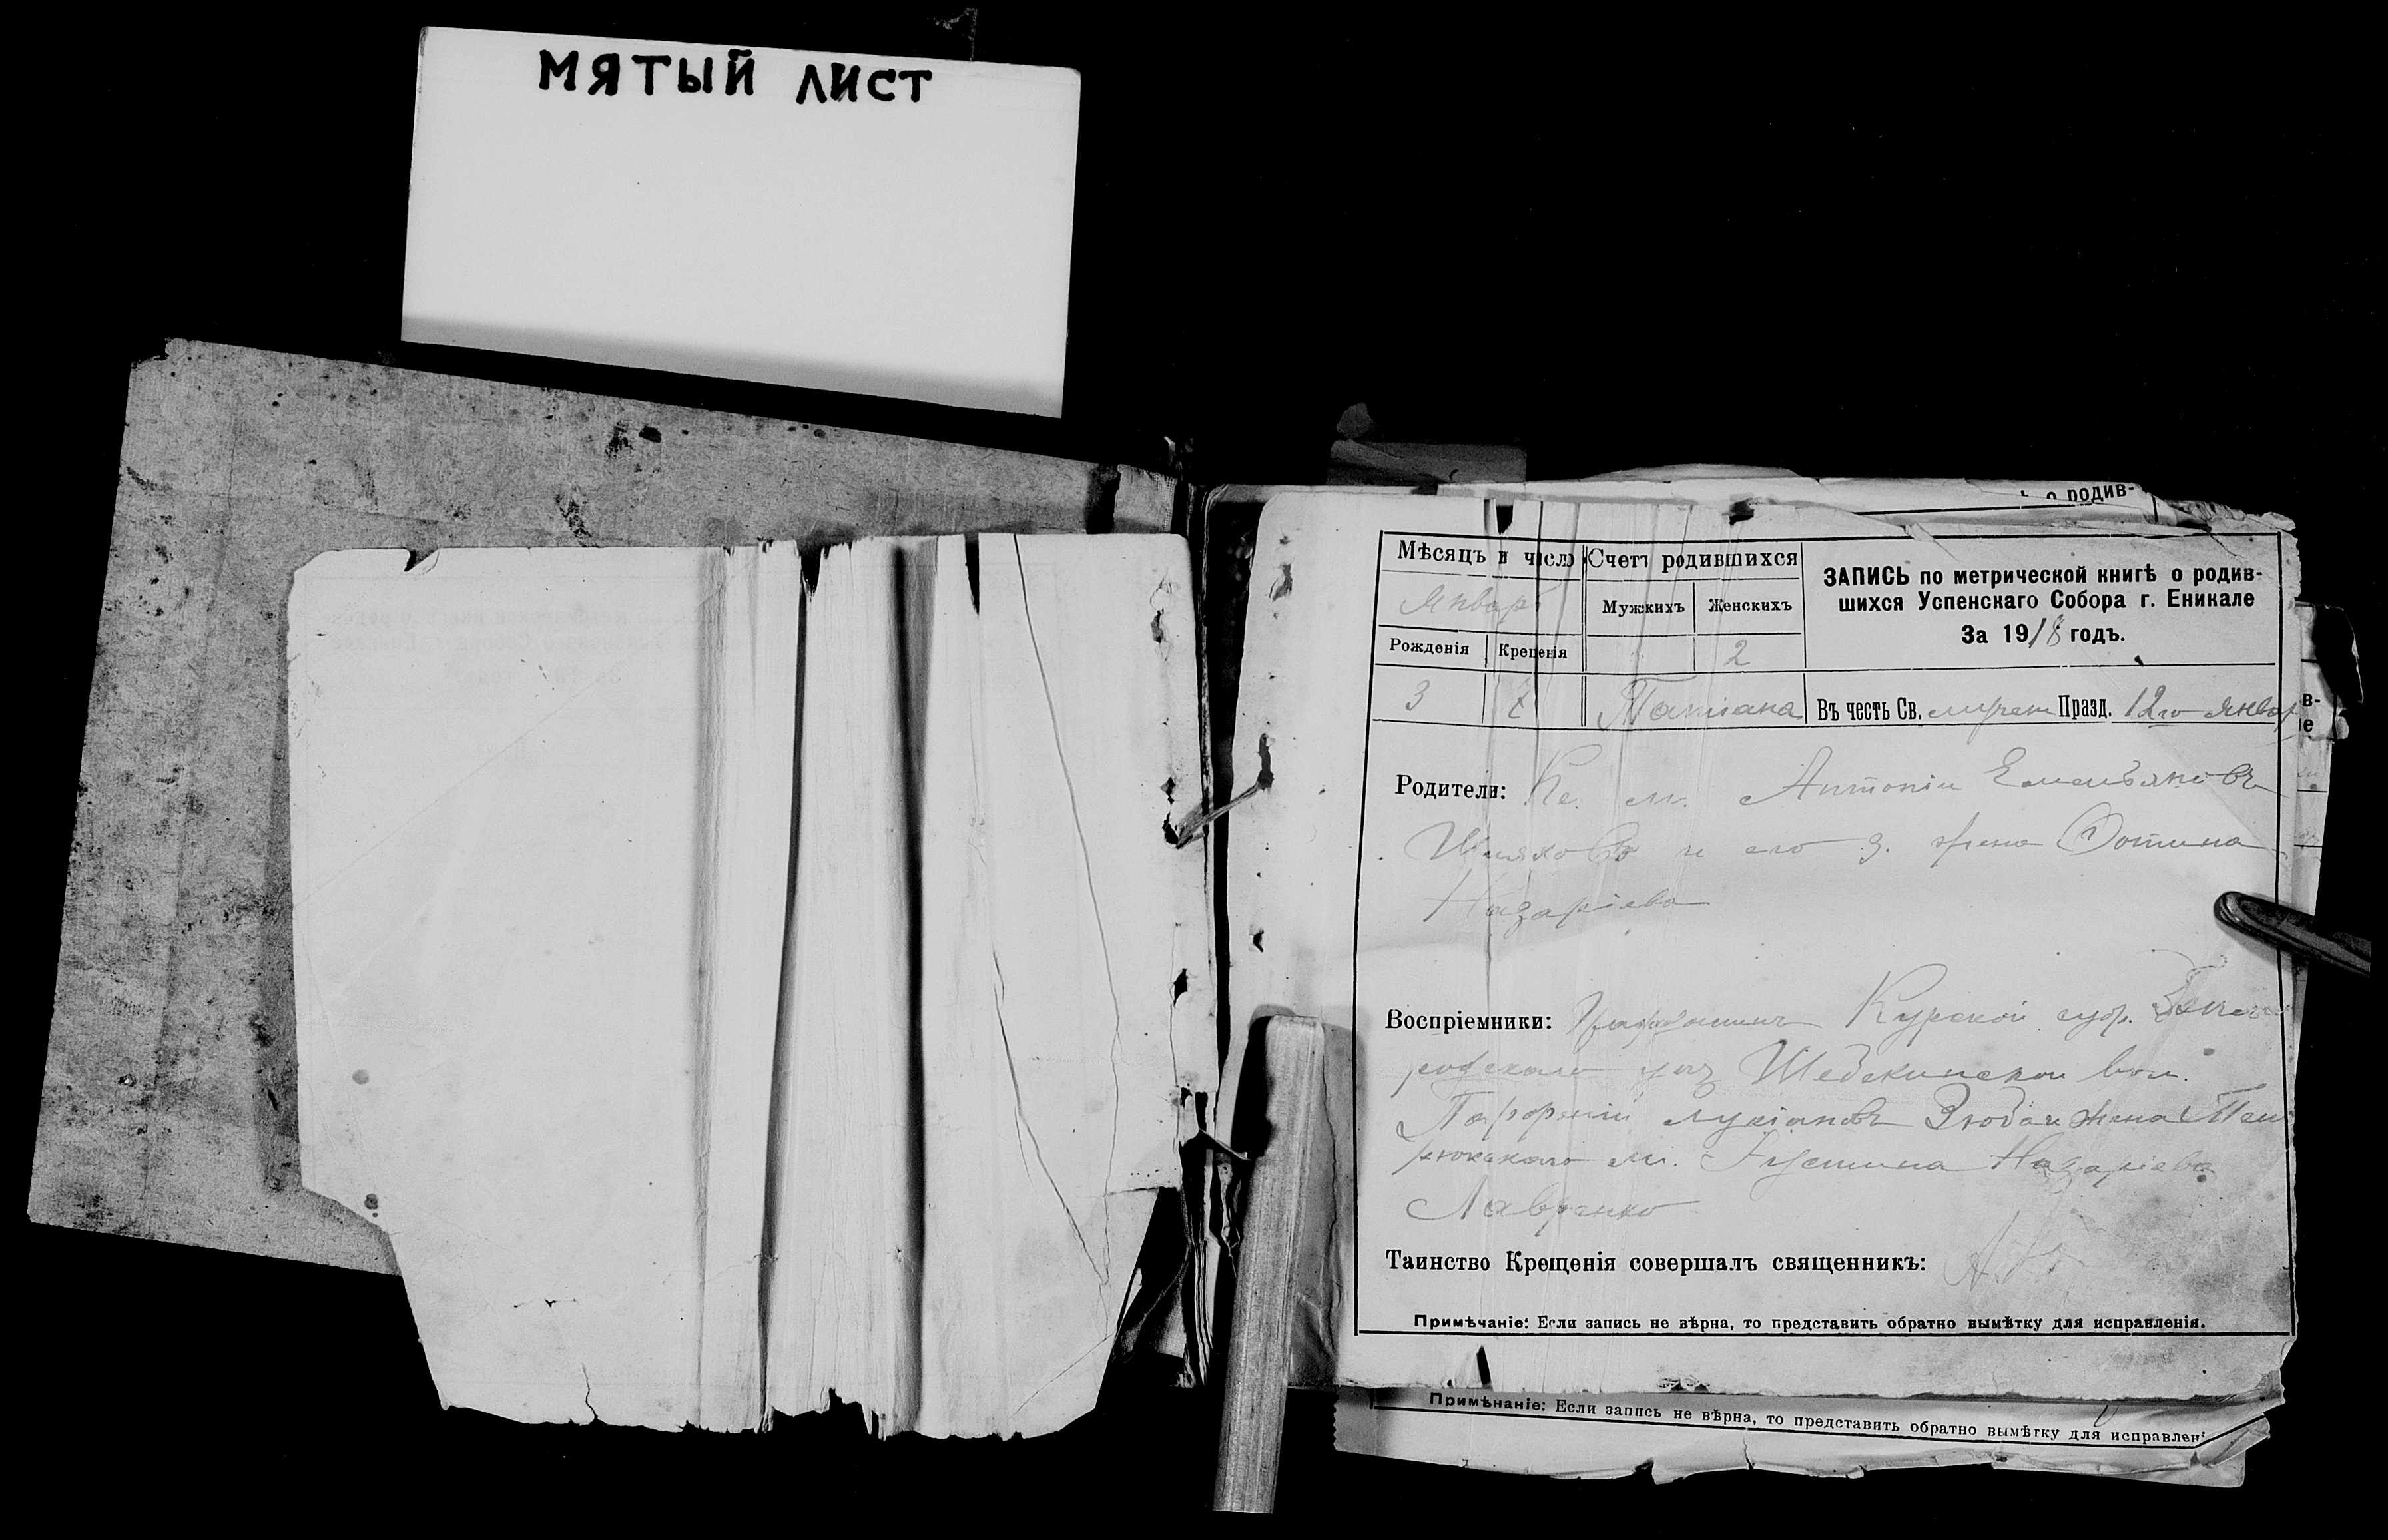 МЯТЫЙ ЛИСТ
ь о родив-
Мѣсяцъ и число
Январь
Рожденія
Крещенія
3
Счетъ родившихся
Мужскихъ
Женскихъ
2
Татіана
ЗАПИСЬ по метрической книгѣ о родив-
шихся Успенскаго Собора г. Еникале
За 1918 годъ.
Въ честь Св. Празд. 12го Январ
в-
е
Родители: Ке. м. Антоній Емельяновъ
и его з. жена Фотина
Назаріева
Воспріемники: Гражданинъ Курской губ.
уѣз Шебекинской вол.
Парфеній Лукіановъ жена Тем
рюкскаго м. Іустина Назаріева
Лавренко
Таинство Крещенія совершалъ священникъ:
Примѣчаніе: Если запись не вѣрна, то представить обратно вымѣтку для исправленія.
Примѣчаніе: Если запись не вѣрна, то представить обратно вымѣтку для исправлені